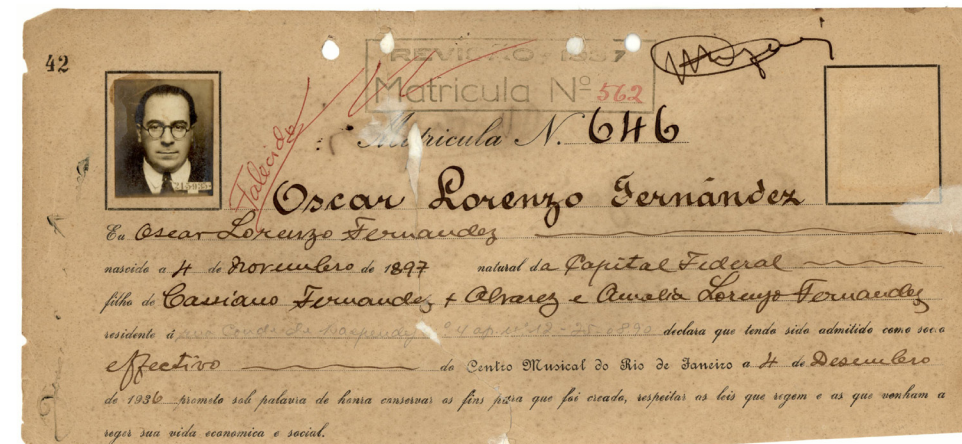 42
REVISÃO - 1937
Matricula Nº 562
Falecido
Matricula N. 646
Oscar Lorenzo Fernández
Eu Oscar Lorenzo Fernandez
nascido a 4 de Novembro de 1897 natural da Capital Federal
filho de Cassiano Fernandez + Alvarez e Amelia Lorenzo Fernandez
residente á declara que tendo sido admitido como socio
effectivo do Centro Musical do Rio de Janeiro a 4 de Desembro
de 1936 prometo sob palavra de honra conservar os fins para que foi creado, respeitar as leis que regem e as que venham a
reger sua vida economica e social.